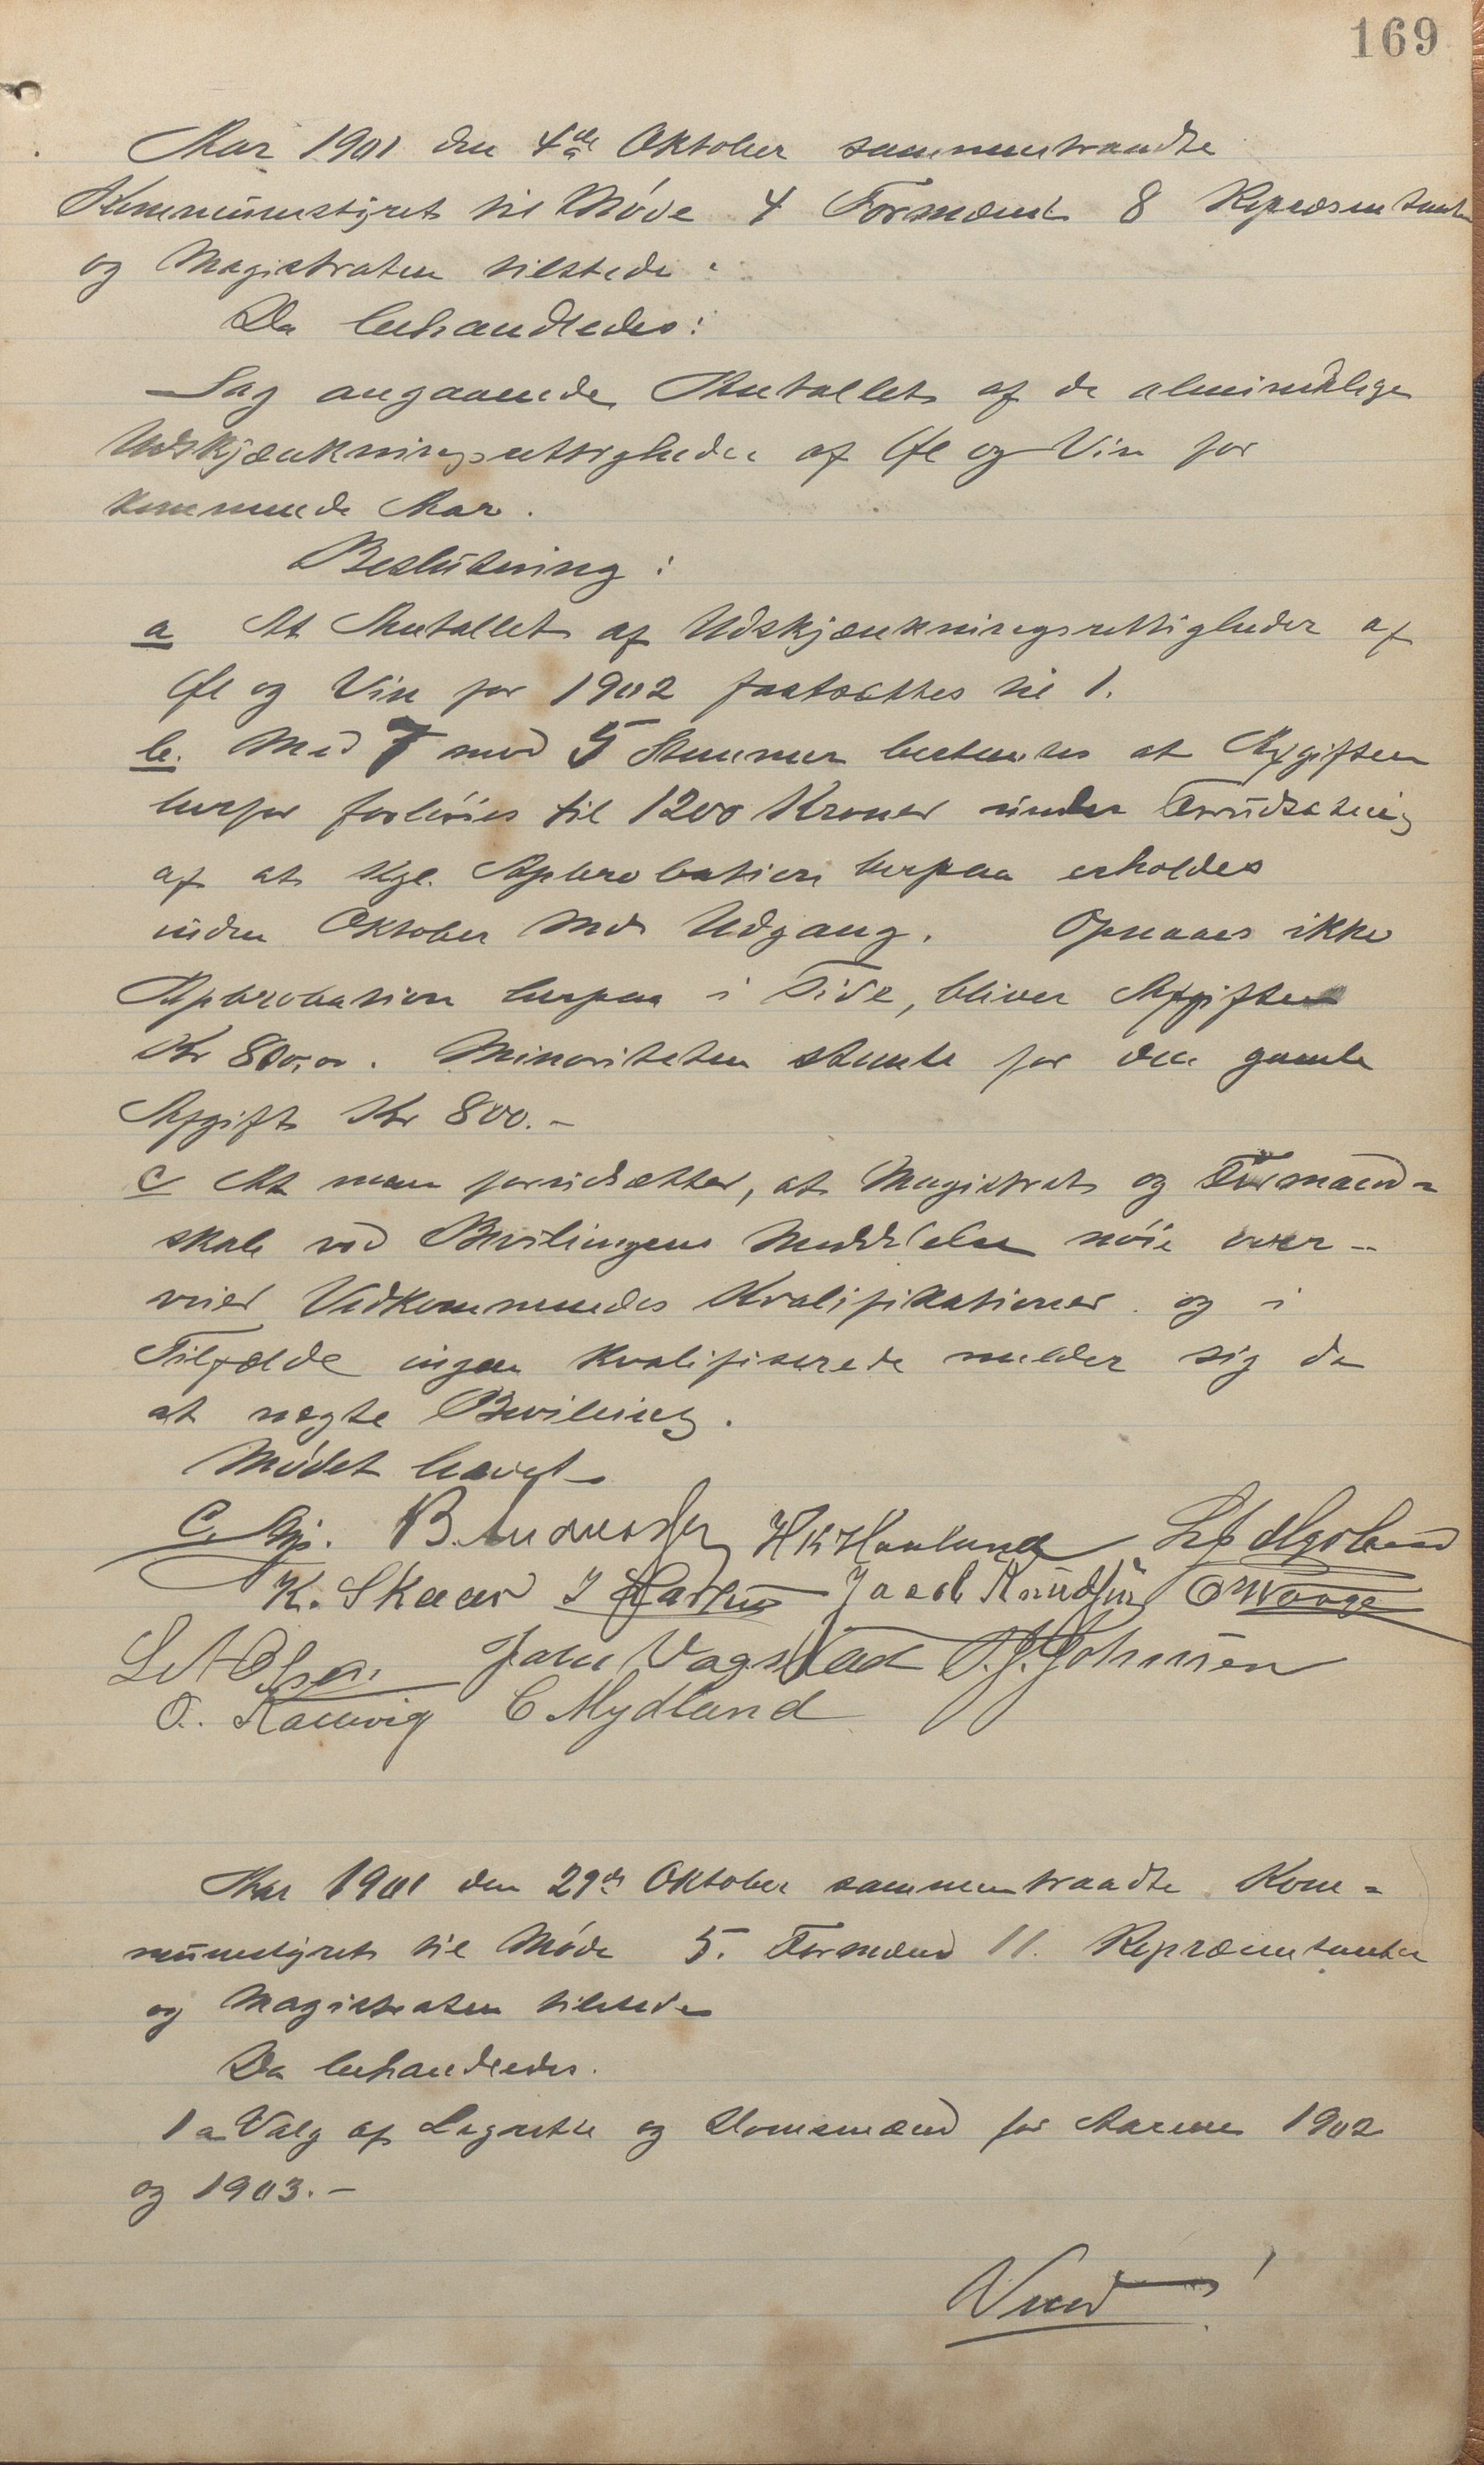 169
Aar 1901 den 4de Oktober sammentraadte
Kommunestyret til Møde 4 Formænd 8 Repræsentanter
og Magistraten tilstede:
Da behandledes:
Sag angaaende Antallet af de almindelige
Udskjænkningsrettigheder af Øl og Vin for
kommende Aar.
Beslutning:
a At Antallet af Udskjænkningsrettigheder af
Øl og Vin for 1902 fastsættes til 1.
b. Med 7 mod 5 Stemmer bestemtes at Afgiften
herfor forhøies til 1200 Kroner under Forudsætning
af at Kgl. Approbation herpaa erholdes
inden Oktober Mds Udgang. Opnaaes ikke
Approbation herpaa i Tide, bliver Afgiften
Kr 800,00. Minoriteten stemte for den gamle
Afgift Kr 800.-
c At man forudsætter, at Magistrat og Formand-
skab ved Bevilingens Meddelelse nøie over-
veier Vedkommendes Kvalifikationer og i
Tilfælde ingen kvalifiserede melder sig da
at negte Beviling.
Mødet hævet
B. Andersen H K Haaland
K. Skaar Jacob Knudsen O Waage
L A Olsen John Vagstad P. J. Johnsen
O. Rallvig C Mydland
Aar 1901 den 29de Oktober sammentraadte Kom-
munestyret til Møde 5. Formænd 11. Repræsentanter
og Magistraten tilstede
Da behandledes.
1 a Valg af Lagrette og Domsmænd for Aarene 1902
og 1903.-
Vend!